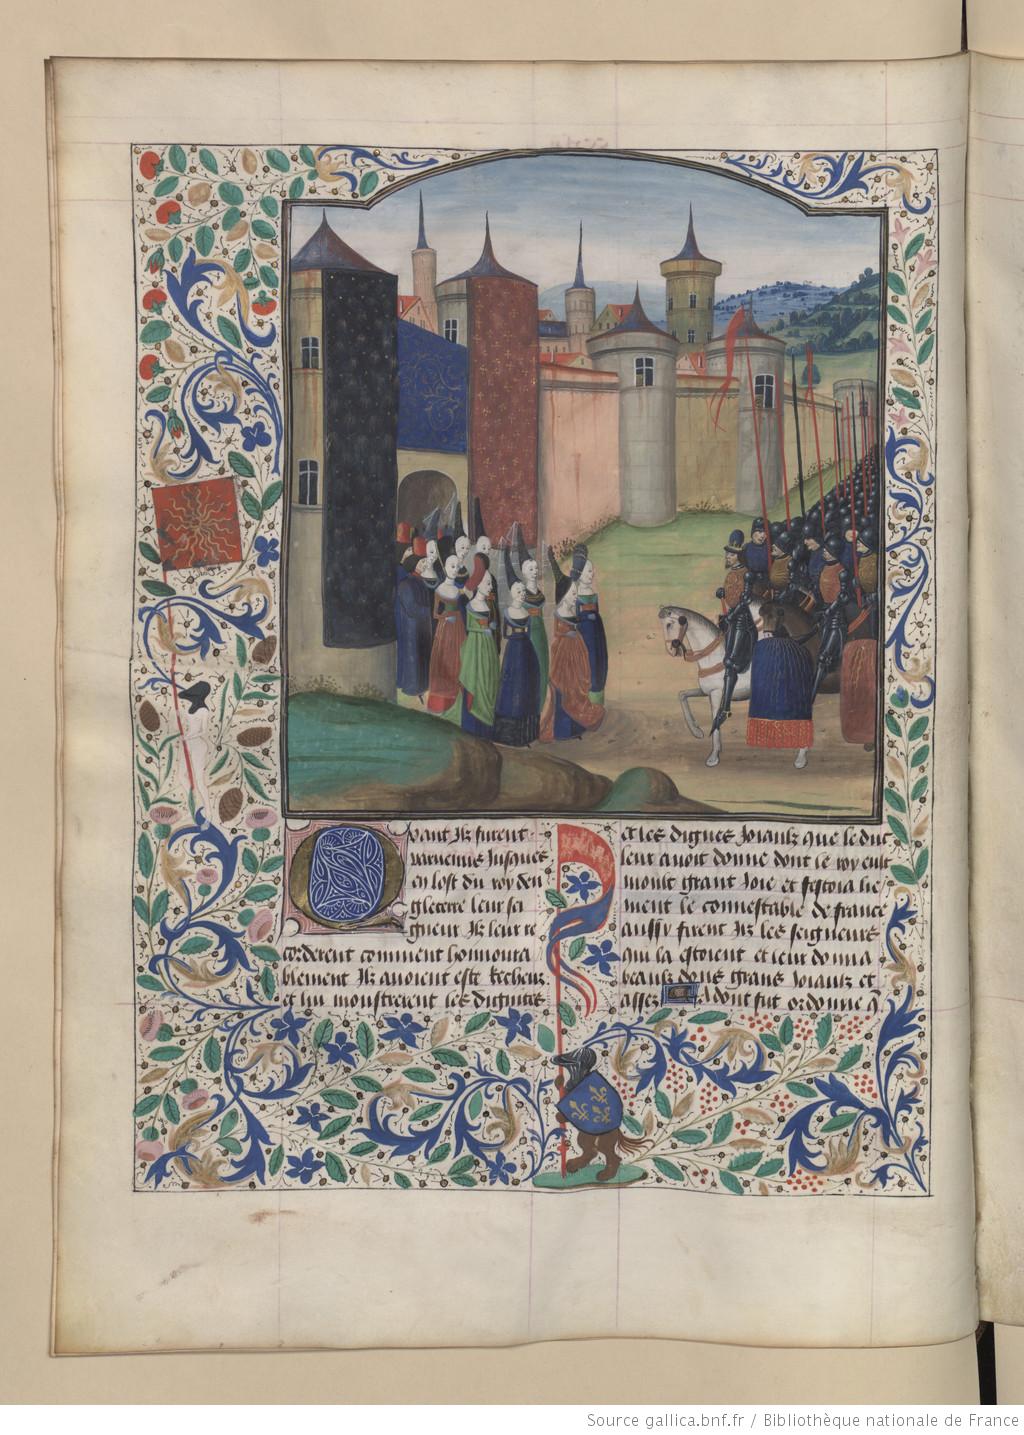 Quant Ilz furent
parvenus Jusques
en lost du roy den
gleterre leur sei
gneur Ilz leur re
corderent comment honnoura
blement Ilz avoient este Recheuz
et lui monstrerent les dignites
et les dignes Joiaulx que le duc
leur avoit donne dont le roy eult
moult grant Joie et festoia lie
ment le connestable de france
aussy firent Ilz les seigneurs
qui la estoient et leur donna
beaulx dons grans Joiaulx et
assez Adont fut ordonne a
Source gallica.bnf.fr / Bibliothèque nationale de France